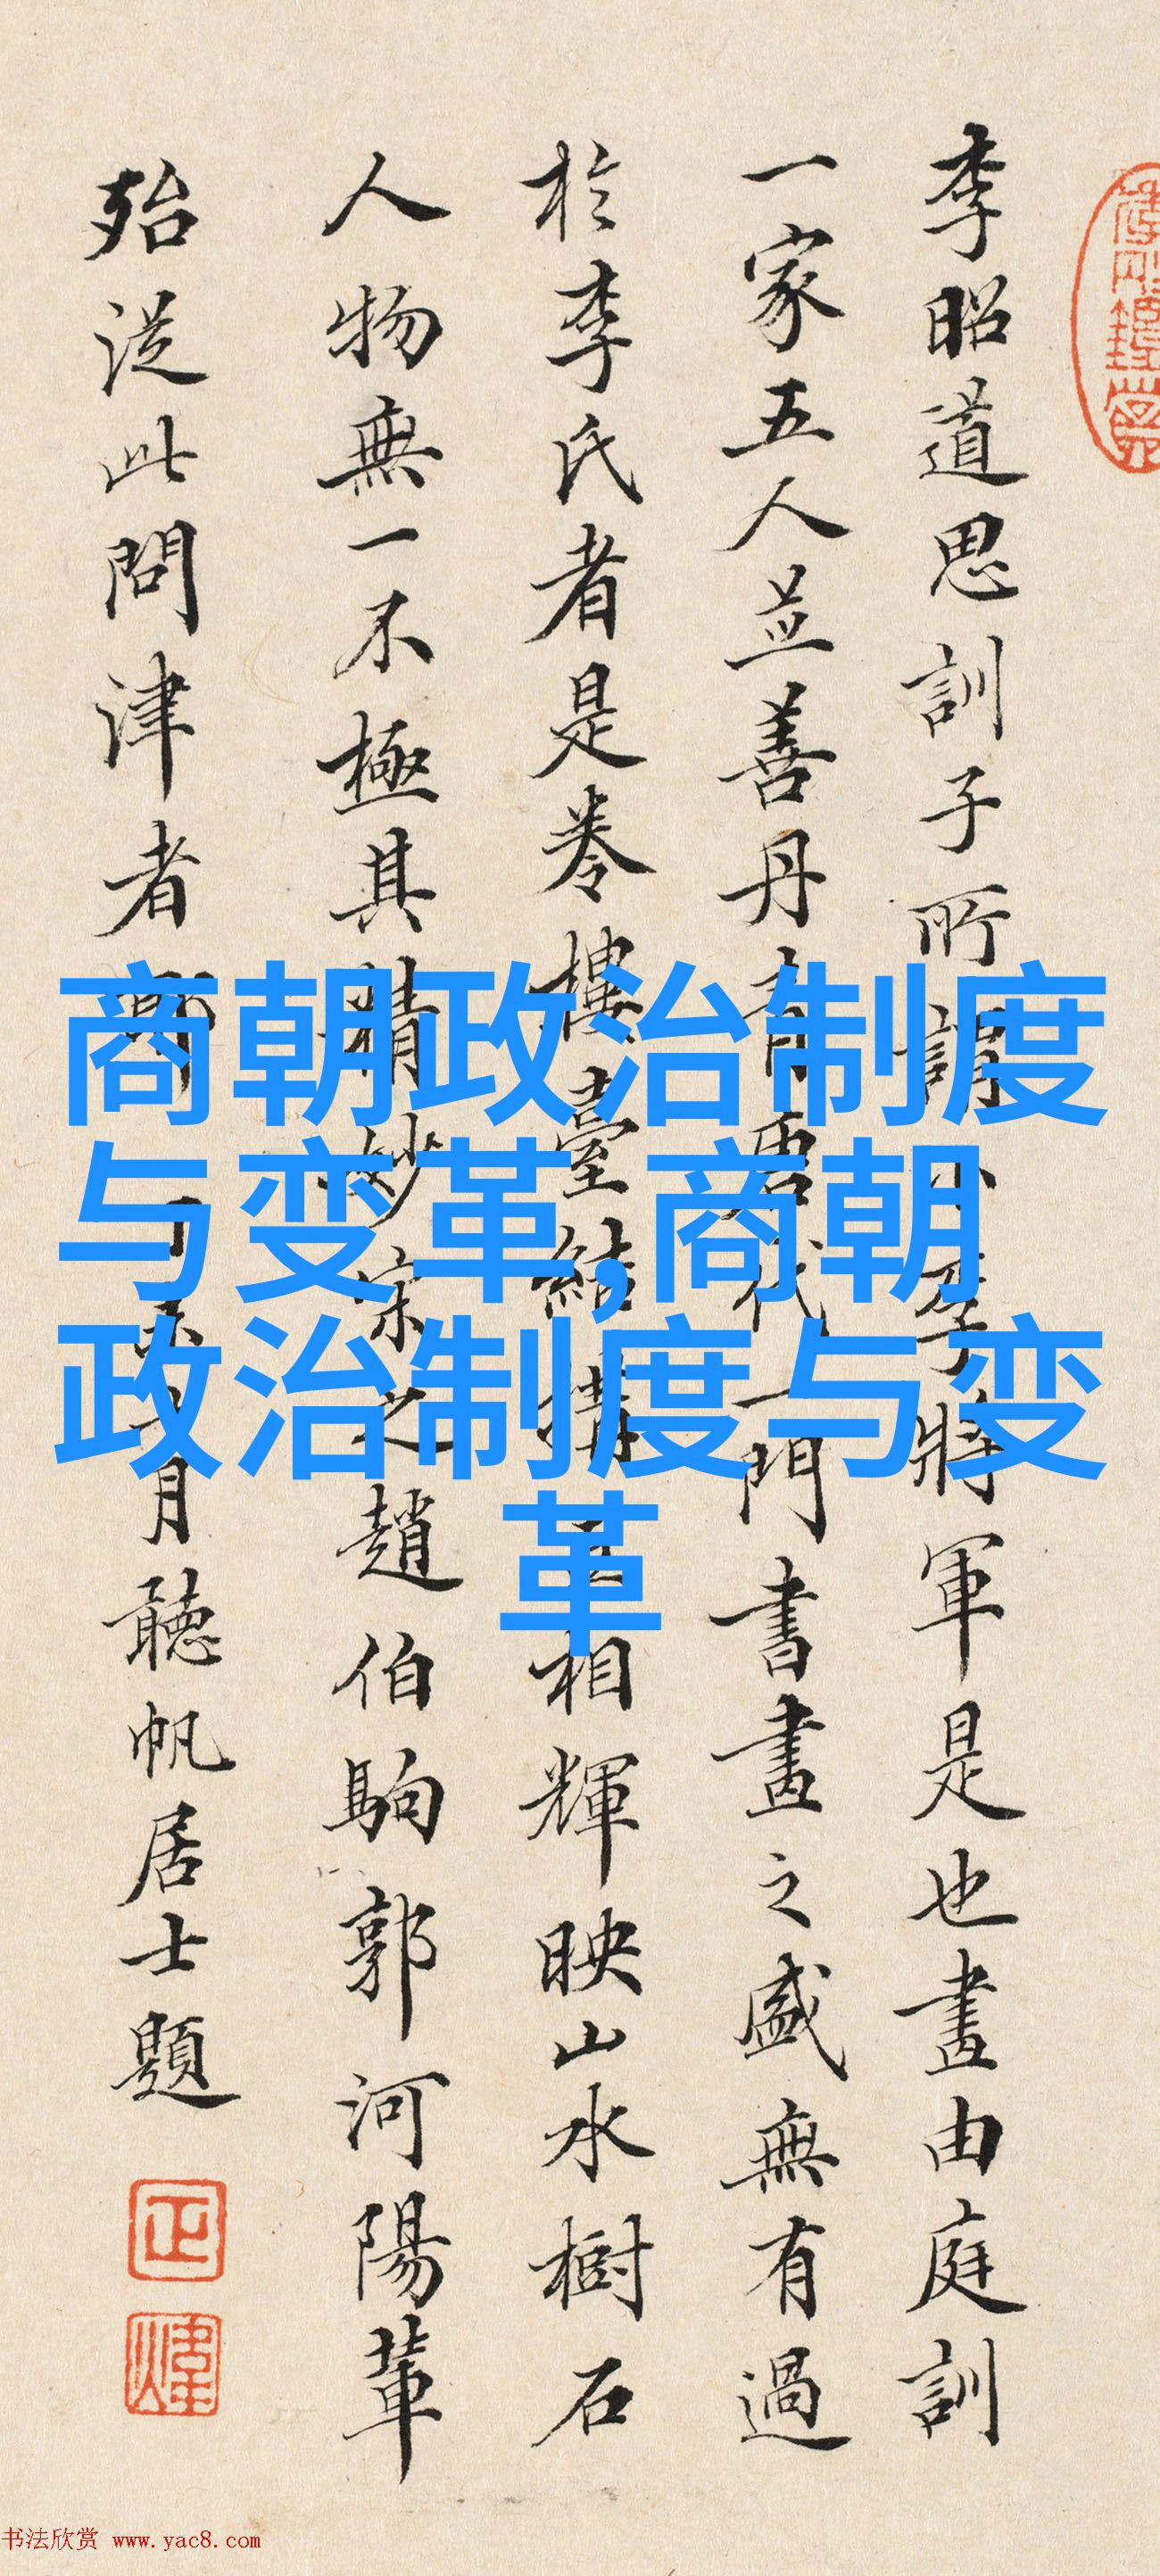 李昭道思訓子所謂小李將軍是也畫由庭訓
一家五人並善丹青唐代一門書畫之盛無有過
於李氏者是卷樓臺結構相輝映山水樹石
人物無一不極其精妙宋之趙伯駒郭河陽輩
殆從此問津者月聽帆居士題
商朝政治制度
与变革,商朝
政治制度与变
革
书法欣赏 www.yac8.com